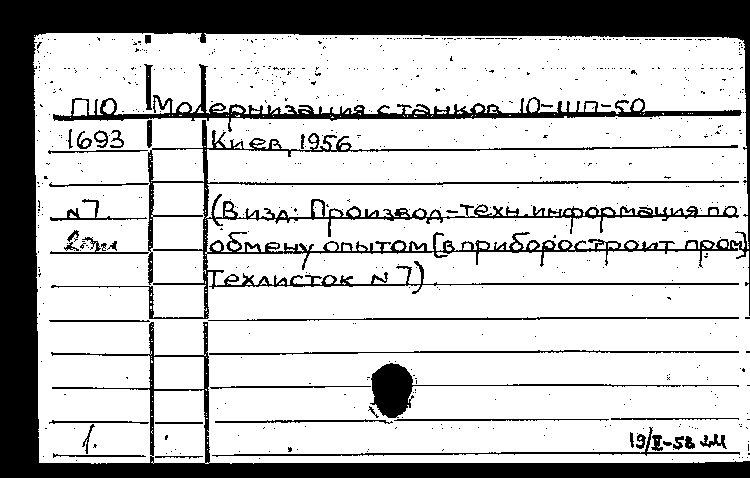 П10 Модернизация станков 10-ШП-50
1693 Киев, 1956
№7. (В изд: Производ-техн.информация по
обмену опытом [в приборостроит пром]
Техлисток №7).
1. 19/II-58